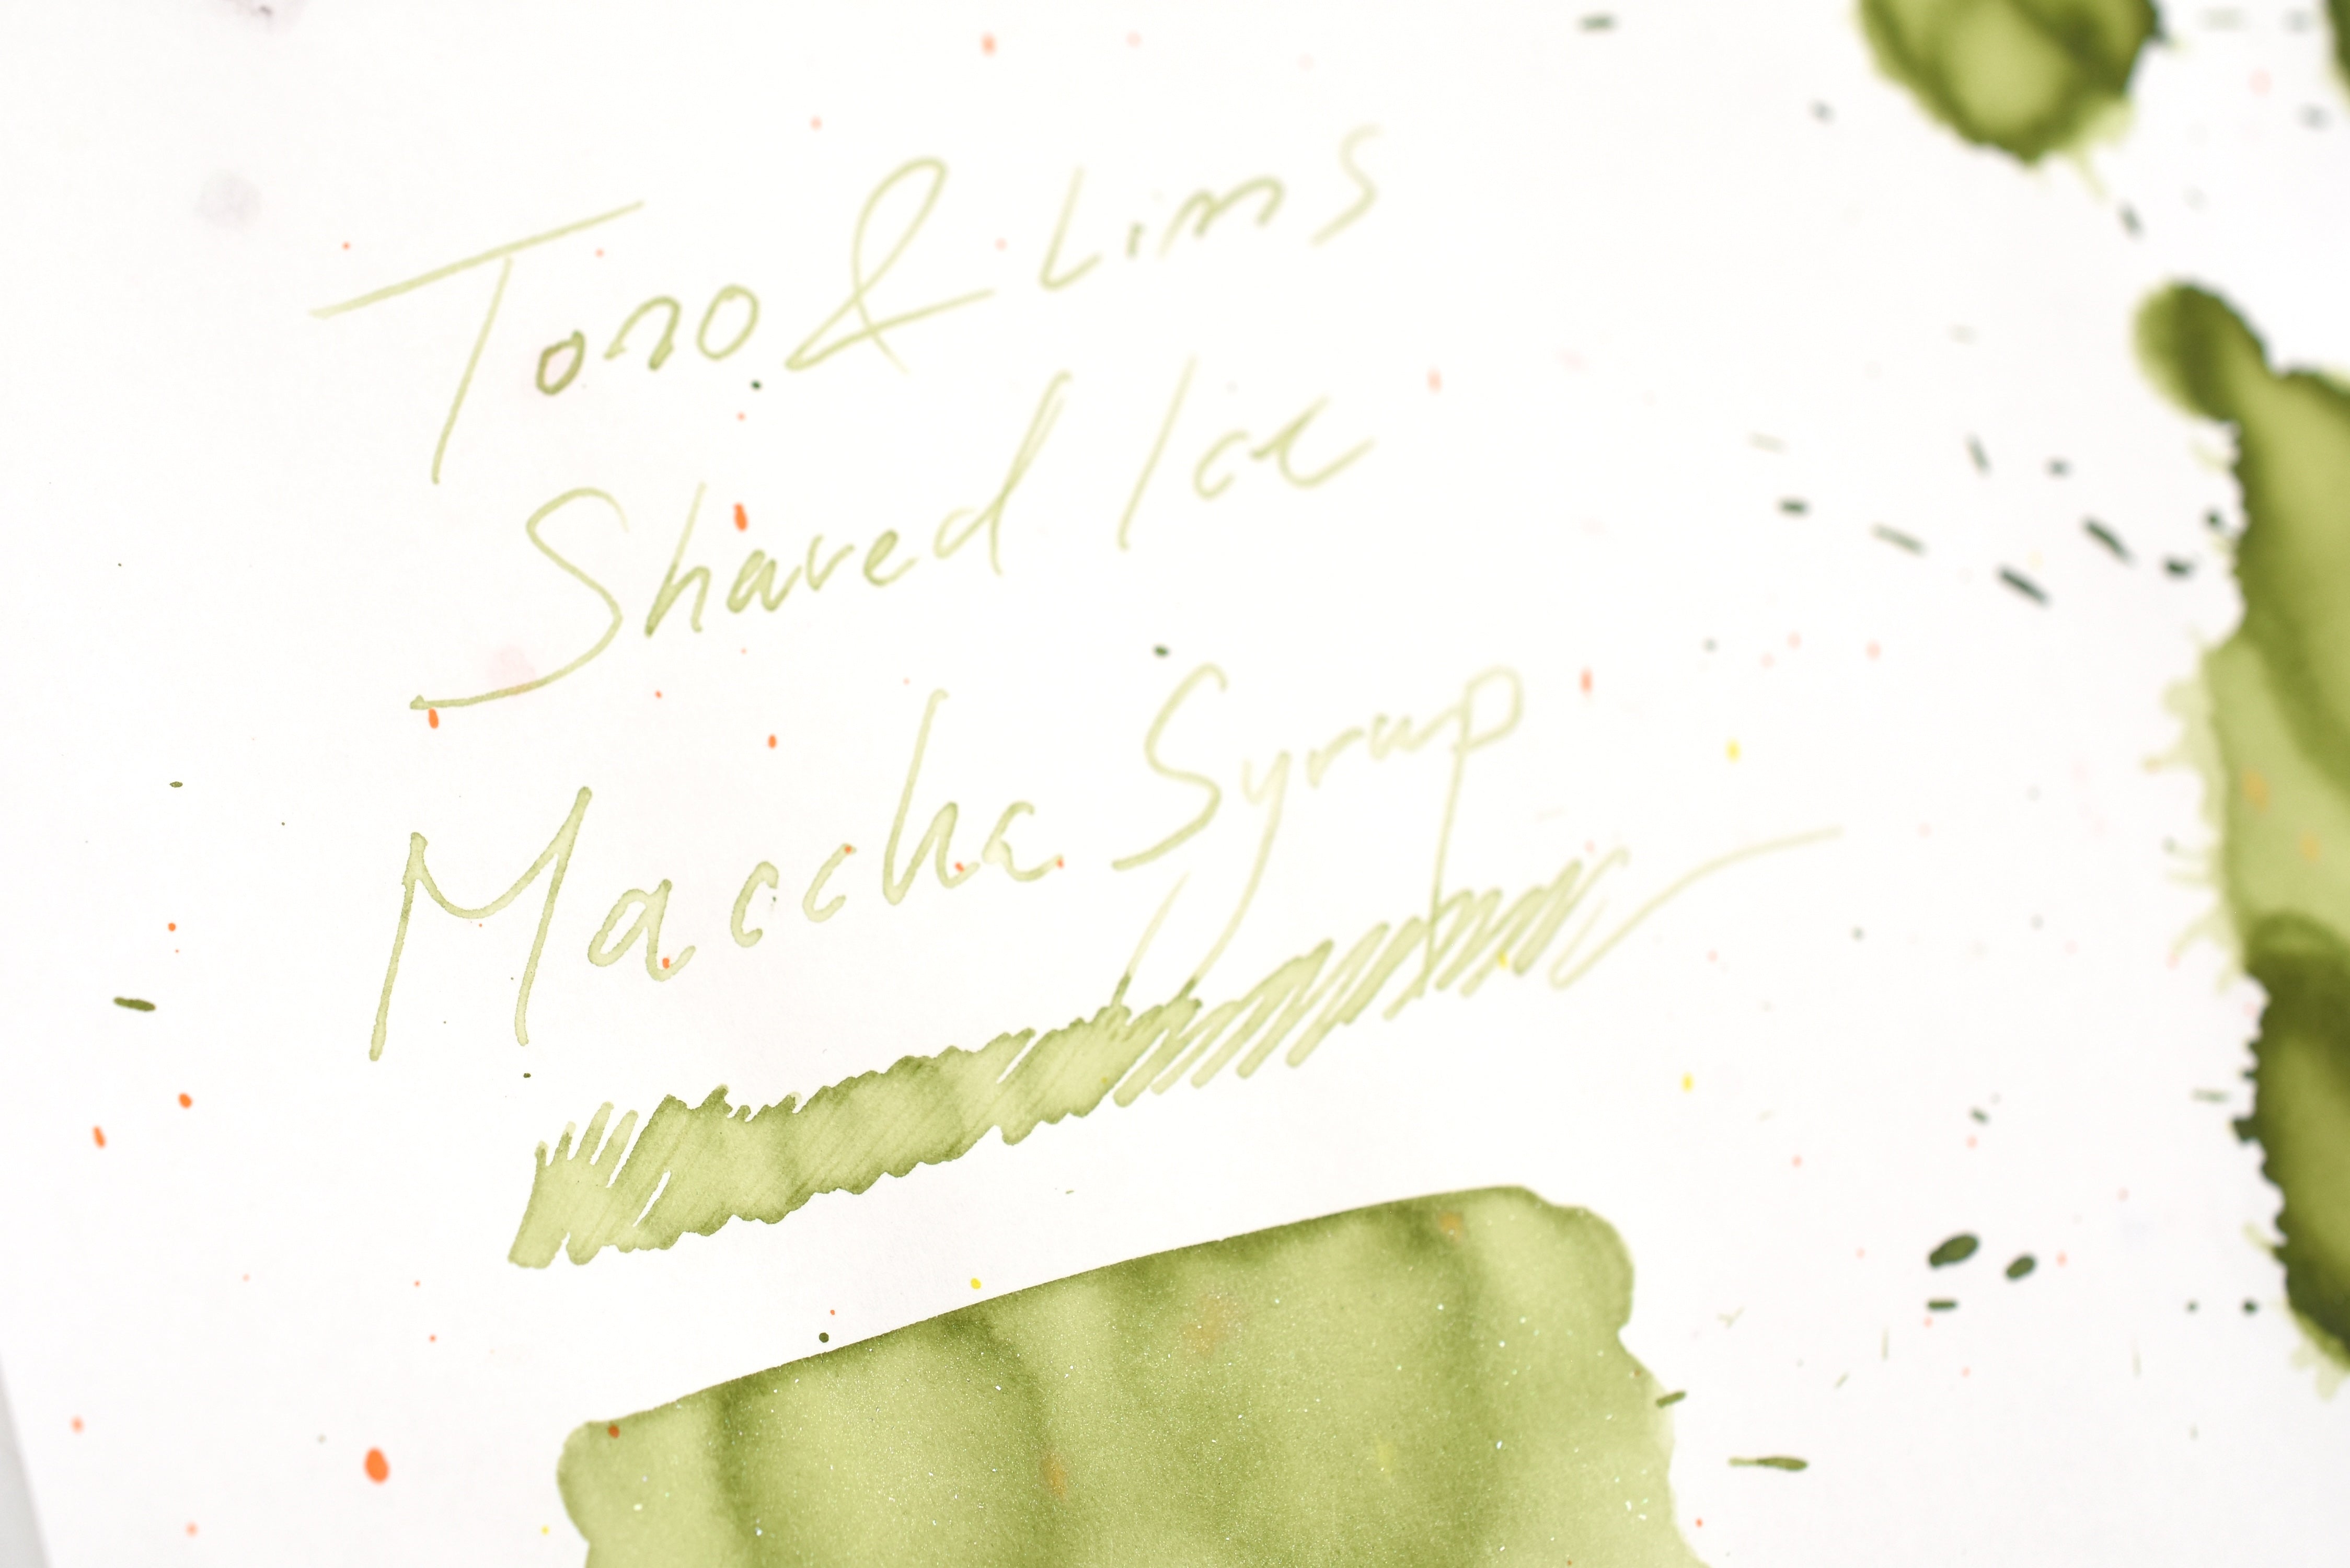 Tono & Lims
Shaved Ice
Maccha Syrup